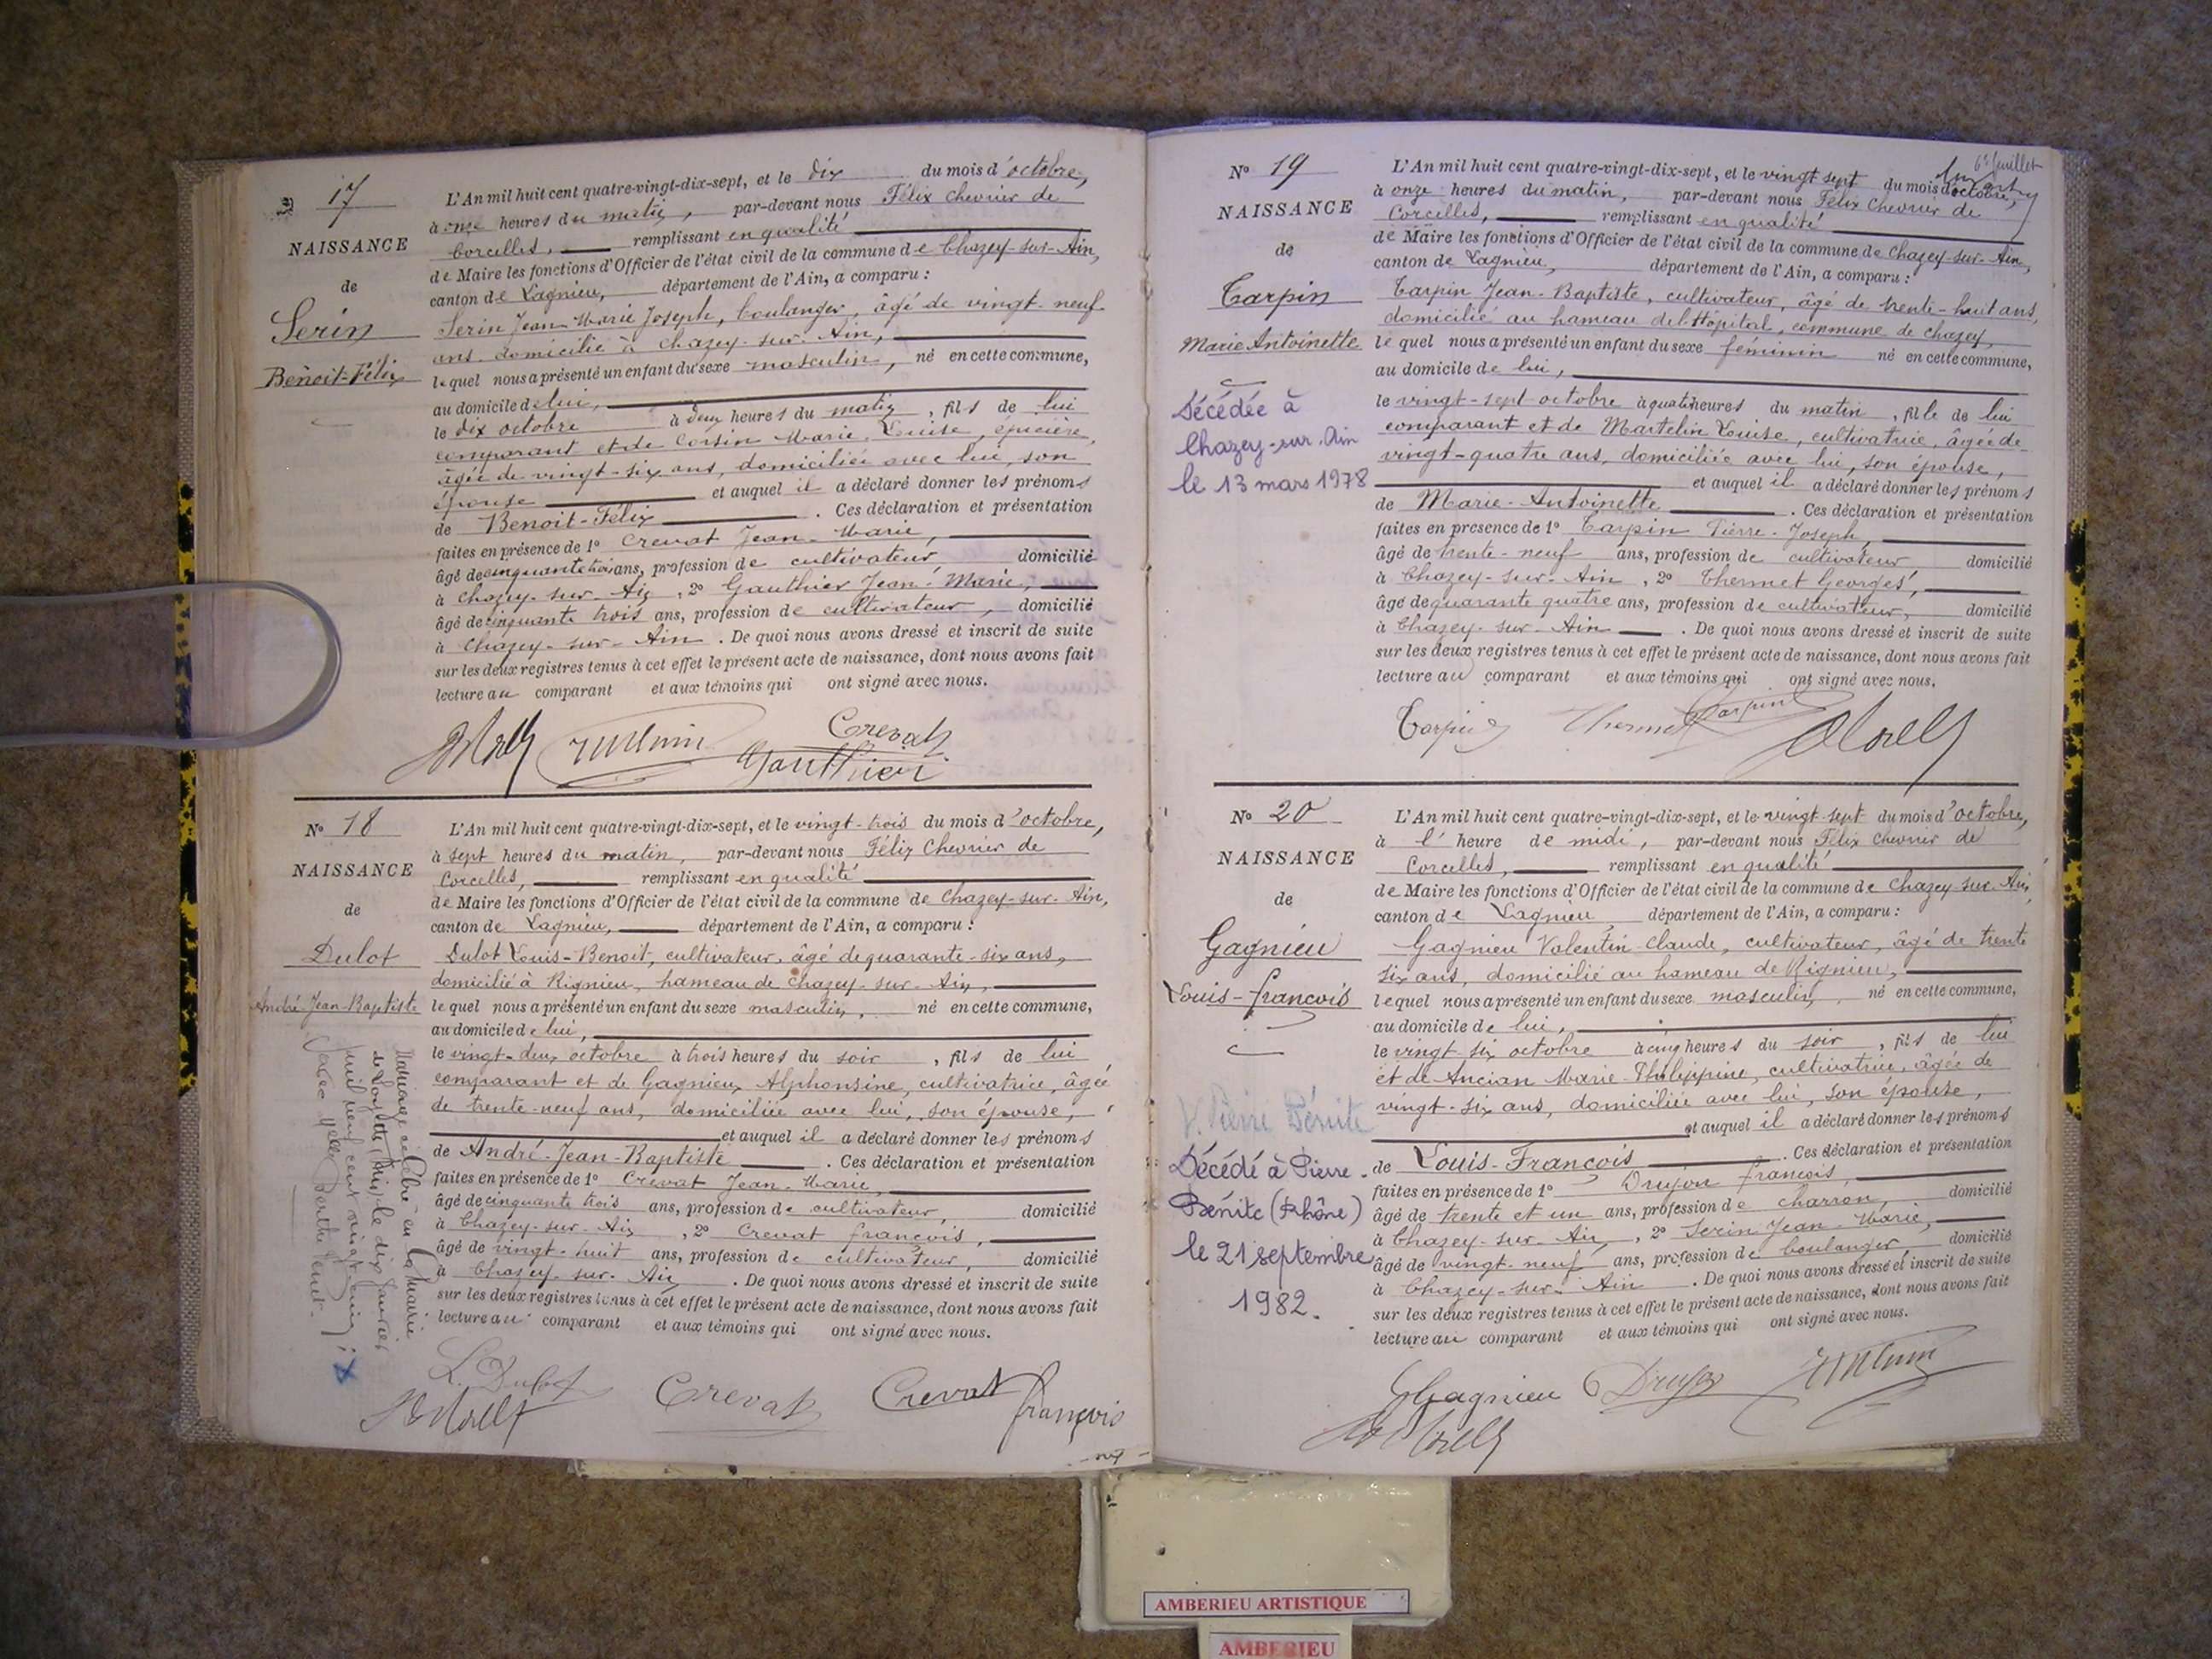 17
NAISSANCE
de
Serin
Benoit-Félix
L'An mil huit cent quatre-vingt-dix-sept, et le dix du mois d'octobre,
à onze heures du matin, par-devant nous Félix Chevrier de
Corcelles, remplissant en qualité
de Maire les fonctions d'Officier de l'état civil de la commune de Chazey-sur-Ain,
canton de Lagnieu, département de l'Ain, a comparu :
Serin Jean-Marie Joseph, boulanger, âgé de vingt-neuf
ans domicilié à Chazey-sur-Ain,
lequel nous a présenté un enfant du sexe masculin, né en cette commune,
au domicile de lui,
le dix octobre à deux heures du matin, fils de lui
comparant et de Corsin Marie Louise, épicière,
âgée de vingt-six ans, domiciliée avec lui, son
épouse et auquel il a déclaré donner les prénoms
de Benoit-Félix . Ces déclaration et présentation
faites en présence de 1° Crevat Jean-Marie,
âgé de cinquante trois ans, profession de cultivateur domicilié
à Chazey-sur-Ain, 2° Gauthier Jean-Marie,
âgé de cinquante trois ans, profession de cultivateur, domicilié
à Chazey-sur-Ain . De quoi nous avons dressé et inscrit de suite
sur les deux registres tenus à cet effet le présent acte de naissance, dont nous avons fait
lecture au comparant et aux témoins qui ont signé avec nous.
Crevat
Gauthier
N° 18
NAISSANCE
de
Dulot
André-Jean-Baptiste
Mariage célébré en la mairie
de Loyettes (Ain) le dix janvier
mil neuf cent vingt cinq :
avec Berthe
L'An mil huit cent quatre-vingt-dix-sept, et le vingt-trois du mois d'octobre,
à sept heures du matin, par-devant nous Félix Chevrier de
Corcelles, remplissant en qualité
de Maire les fonctions d'Officier de l'état civil de la commune de Chazey-sur-Ain,
canton de Lagnieu, département de l'Ain, a comparu :
Dulot Louis-Benoit, cultivateur, âgé de quarante-six ans,
domicilié à Rignieu, hameau de Chazey-sur-Ain,
lequel nous a présenté un enfant du sexe masculin, né en cette commune,
au domicile de lui,
le vingt-deux octobre à trois heures du soir, fils de lui
comparant et de Gagnieux Alphonsine, cultivatrice, âgée
de trente-neuf ans, domiciliée avec lui, son épouse,
et auquel il a déclaré donner les prénoms
de André-Jean-Baptiste . Ces déclaration et présentation
faites en présence de 1° Crevat Jean-Marie,
âgé de cinquante trois ans, profession de cultivateur, domicilié
à Chazey-sur-Ain, 2° Crevat françois,
âgé de vingt-huit ans, profession de cultivateur, domicilié
à Chazey-sur-Ain . De quoi nous avons dressé et inscrit de suite
sur les deux registres tenus à cet effet le présent acte de naissance, dont nous avons fait
lecture au comparant et aux témoins qui ont signé avec nous.
L. Dulot
Crevat
Crevat
françois
6e feuillet
N° 19
NAISSANCE
de
Tarpin
Marie Antoinette
Décédée à
Chazey-sur-Ain
le 13 mars 1978
L'An mil huit cent quatre-vingt-dix-sept, et le vingt sept du mois d'octobre,
à onze heures du matin, par-devant nous Félix Chevrier de
Corcelles, remplissant en qualité
de Maire les fonctions d'Officier de l'état civil de la commune de Chazey-sur-Ain,
canton de Lagnieu, département de l'Ain, a comparu :
Tarpin Jean-Baptiste, cultivateur, âgé de trente-huit ans,
domicilié au hameau de l'Hôpital, commune de Chazey,
lequel nous a présenté un enfant du sexe féminin né en cette commune,
au domicile de lui,
le vingt-sept octobre à quatre heures du matin, fille de lui
comparant et de Martelin Louise, cultivatrice, âgée de
vingt-quatre ans, domiciliée avec lui, son épouse,
et auquel il a déclaré donner les prénoms
de Marie-Antoinette . Ces déclaration et présentation
faites en présence de 1° Tarpin Pierre-Joseph,
âgé de trente-neuf ans, profession de cultivateur domicilié
à Chazey-sur-Ain, 2° Thermet Georges,
âgé de quarante quatre ans, profession de cultivateur, domicilié
à Chazey-sur-Ain . De quoi nous avons dressé et inscrit de suite
sur les deux registres tenus à cet effet le présent acte de naissance, dont nous avons fait
lecture au comparant et aux témoins qui ont signé avec nous.
Tarpin Thermet Tarpin
N° 20
NAISSANCE
de
Gagnieu
Louis-françois
V. Pierre Bénite
Décédé à Pierre-
Bénite (Rhône)
le 21 septembre
1982.
L'An mil huit cent quatre-vingt-dix-sept, et le vingt-sept du mois d'octobre,
à l' heure de midi, par-devant nous Félix Chevrier de
Corcelles, remplissant en qualité
de Maire les fonctions d'Officier de l'état civil de la commune de Chazey-sur-Ain,
canton de Lagnieu département de l'Ain, a comparu :
Gagnieu Valentin-Claude, cultivateur, âgé de trente
six ans, domicilié au hameau de Rignieu,
lequel nous a présenté un enfant du sexe masculin, né en cette commune,
au domicile de lui,
le vingt six octobre à cinq heures du soir, fils de lui
et de Ancian Marie-Philippine, cultivatrice, âgée de
vingt-six ans, domiciliée avec lui, son épouse,
et auquel il a déclaré donner les prénoms
de Louis-François . Ces déclaration et présentation
faites en présence de 1° Drujon françois,
âgé de trente et un ans, profession de charron, domicilié
à Chazey-sur-Ain, 2° Serin Jean-Marie,
âgé de vingt-neuf ans, profession de boulanger domicilié
à Chazey-sur-Ain . De quoi nous avons dressé et inscrit de suite
sur les deux registres tenus à cet effet le présent acte de naissance, dont nous avons fait
lecture au comparant et aux témoins qui ont signé avec nous.
Gagnieu
AMBERIEU ARTISTIQUE
AMBERIEU